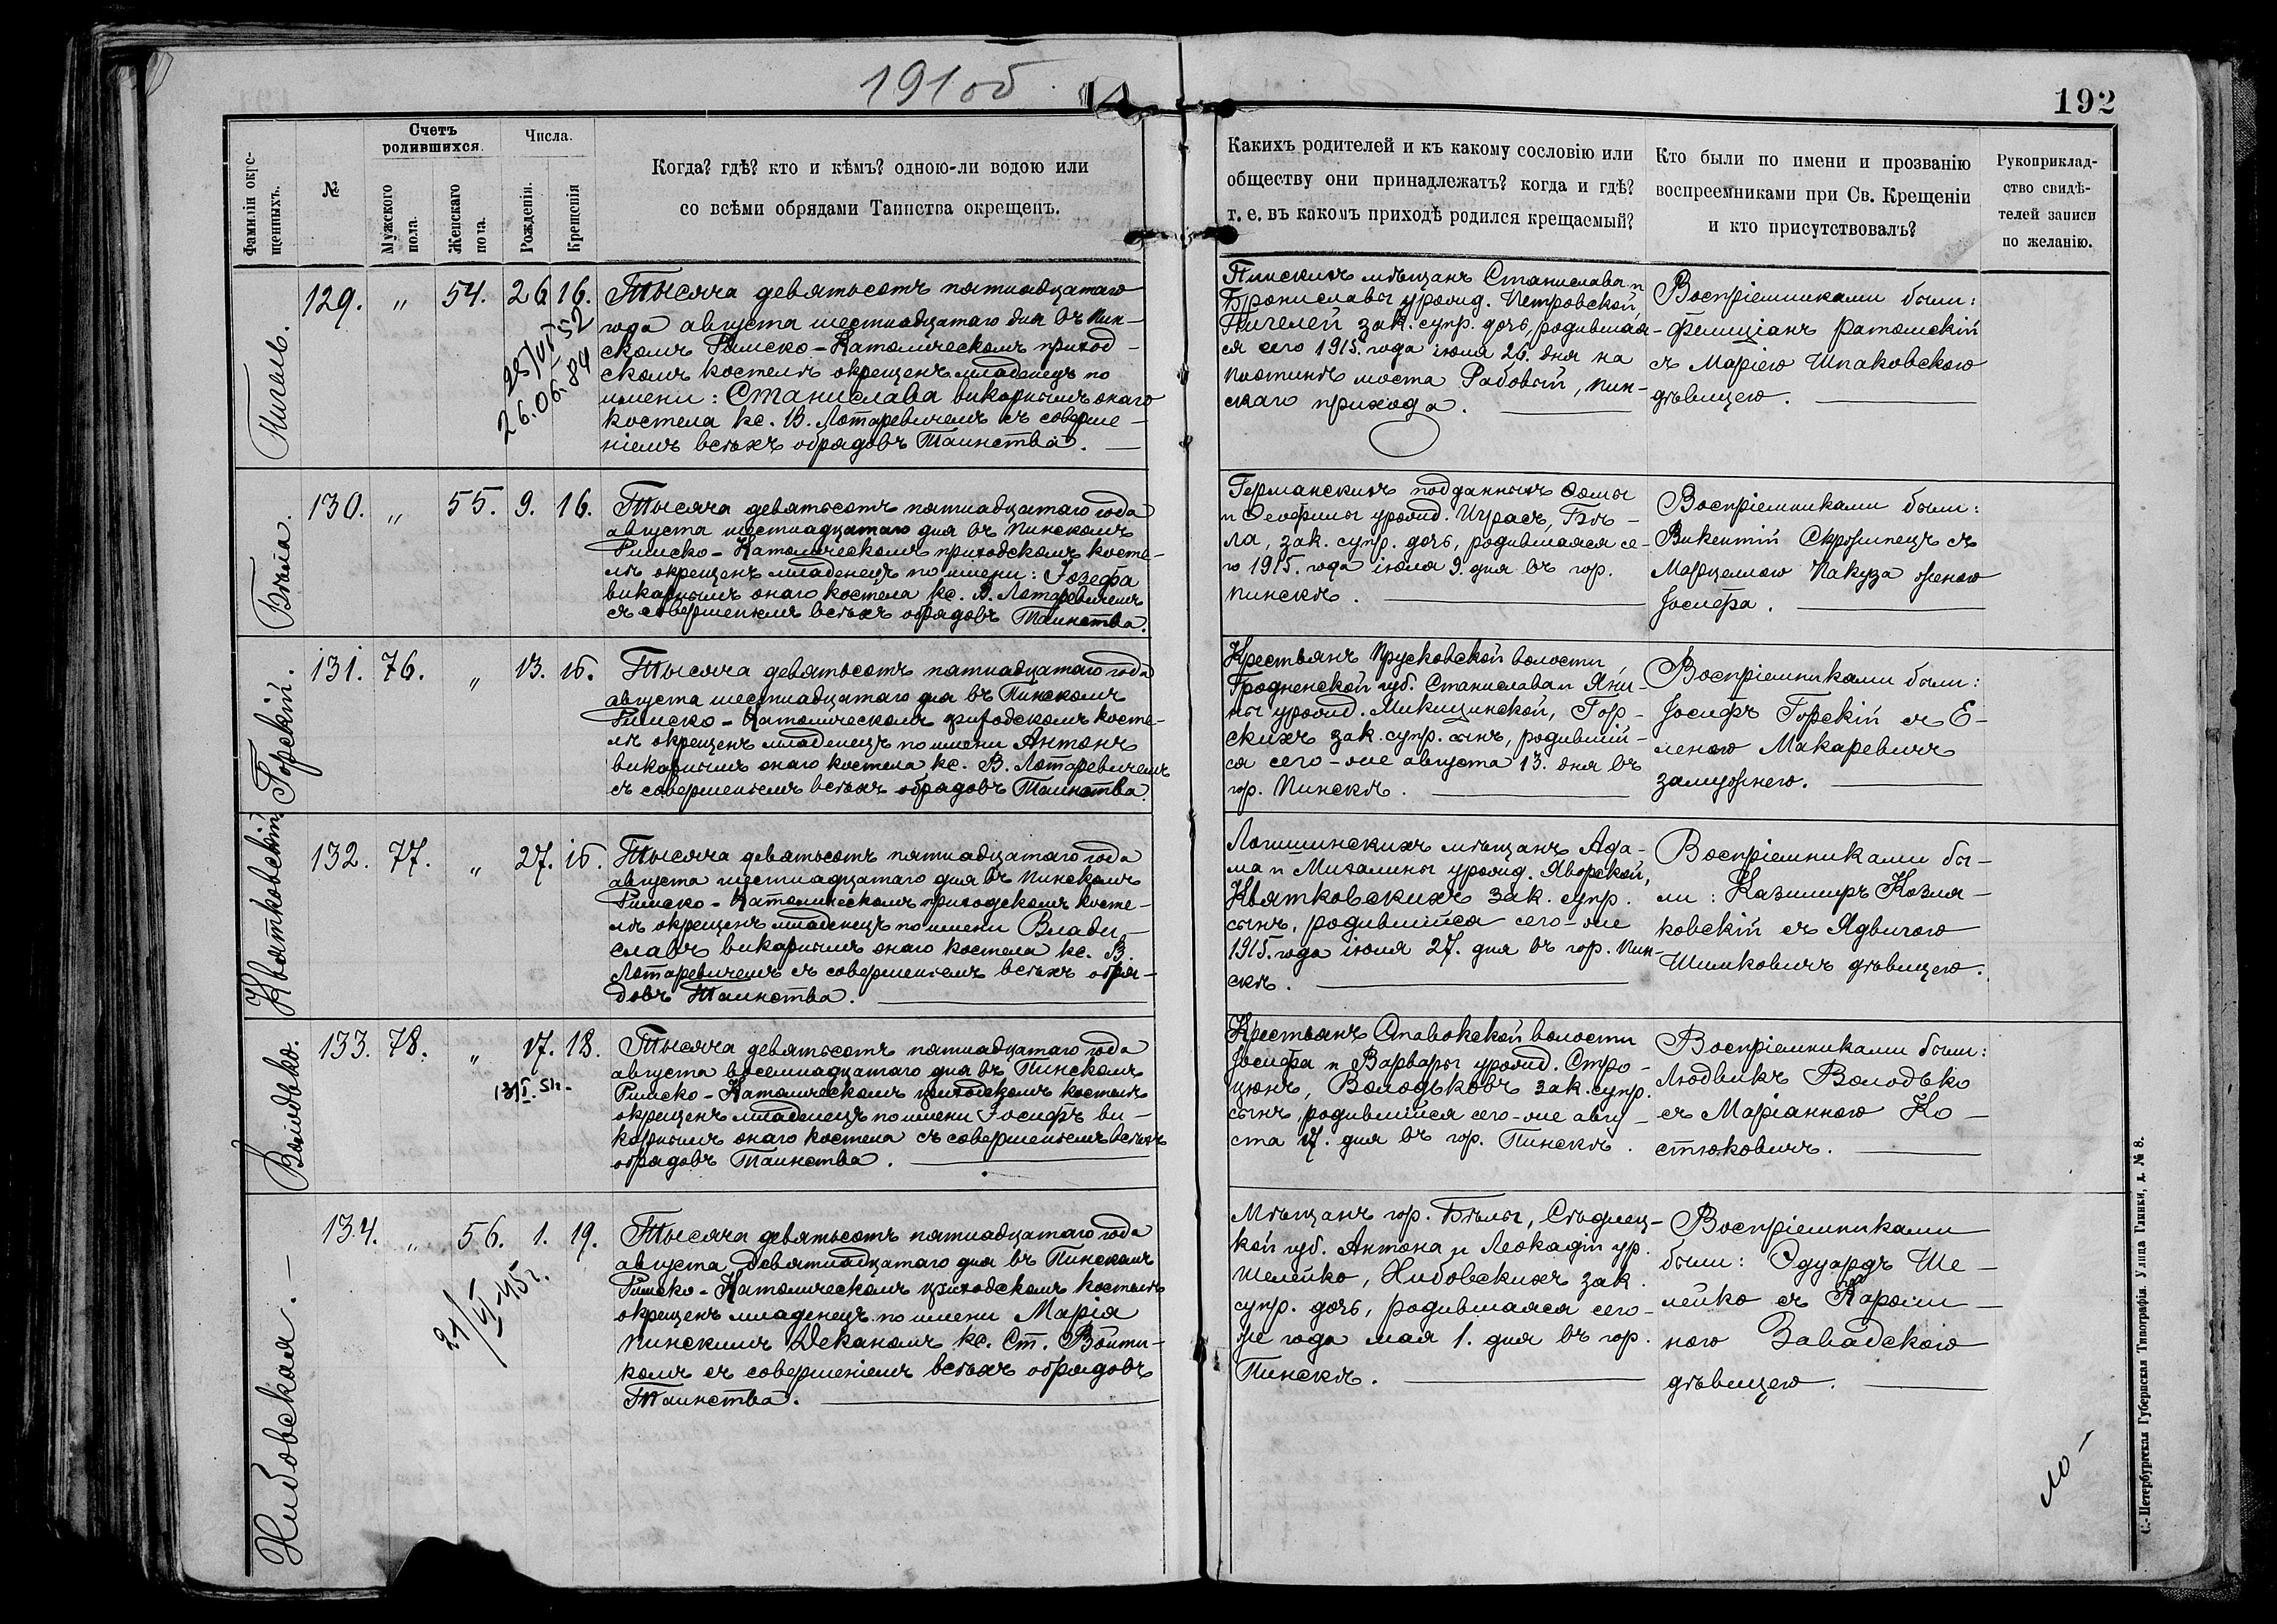 191об
192
Фамиліи окре-
щенныхъ.
№
Счетъ
родившихся.
Мужского
пола.
Женскаго
пола.
Числа.
Рожденія.
Крещенія
Когда? гдѣ? кто и кѣмъ? одною-ли водою или
со всѣми обрядами Таинства окрещенъ.
Какихъ родителей и къ какому сословію или
обществу они принадлежатъ? когда и гдѣ?
т. е. въ какомъ приходѣ родился крещаемый?
Кто были по имени и прозванію
воспреемниками при Св. Крещеніи
и кто присутствовалъ?
Рукоприклад-
ство свидѣ-
телей записи
по желанію.
Пигель.
129. " 54. 26 16.
28/VI 52
26.06.84
Тысяча девятьсотъ пятнадцатаго
года августа шестнадцатаго дня въ Пин-
скомъ Римско-Католическомъ приход-
скомъ костелѣ окрещенъ младенецъ по
имени: Станислава викарнымъ онаго
костела кс. В. Лотаревичемъ съ соверше-
ніемъ всѣхъ обрядовъ Таинства.
Пинскихъ мѣщанъ Станислава и
Брониславы урожд. Петровской,
Пигелей зак. супр. дочь, родившая-
ся сего 1915. года іюля 26. дня на
моста Рабовый, Пин-
скаго прихода.
Воспріемниками были:
Фелиціанъ Ратомскій
съ Маріею Шпаковскою
дѣвицею.
Бѣла.
130. " 55. 9. 16.
Тысяча девятьсотъ пятнадцатаго года
августа шестнадцатаго дня въ Пинскомъ
Римско-Католическомъ приходскомъ косте-
лѣ окрещенъ младенецъ по имени: Іозефа
викарнымъ онаго костела кс. В. Лотаревичемъ
съ совершеніемъ всѣхъ обрядовъ Таинства.
Германскихъ подданныхъ Ѳомы
и Ѳеофилы урожд. Играсъ, Бѣ-
ла, зак. супр. дочь, родившаяся се-
го 1915. года іюля 9. дня въ гор.
Пинскѣ.
Воспріемниками были:
Викентій Скрожипецъ съ
Марцеллою Пакуза женою
Іосифа.
Горскій.
131. 76. " 13. 16.
Тысяча девятьсотъ пятнадцатаго года
августа шестнадцатаго дня въ Пинскомъ
Римско-Католическомъ приходскомъ косте-
лѣ окрещенъ младенецъ по имени Антонъ
викарнымъ онаго костела кс. В. Лотаревичемъ
съ совершеніемъ всѣхъ обрядовъ Таинства.
Крестьянъ Прусковской волости,
Гродненской губ. Станислава и Яни-
ны урожд. Микицинской, Гор-
скихъ зак. супр. сынъ, родившій-
ся сего-же августа 13. дня въ
гор. Пинскѣ.
Воспріемниками были:
Іосифъ Горскій съ Е-
леною Макаревичъ
замужнею.
Квятковскій.
132. 77. " 27. 16.
Тысяча девятьсотъ пятнадцатаго года
августа шестнадцатаго дня въ Пинскомъ
Римско-Католическомъ приходскомъ косте-
лѣ окрещенъ младенецъ по имени Влади-
славъ викарнымъ онаго костела кс. В.
Лотаревичемъ съ совершеніемъ всѣхъ обря-
довъ Таинства.
Логишинскихъ мѣщанъ Ада-
ма и Михалины урожд. Яворской,
Квятковскихъ зак. супр.
сынъ, родившійся сего-же
1915. года іюля 27. дня въ гор. Пин-
скѣ.
Воспріемниками бы-
ли: Казимиръ Козля-
ковскій съ Ядвигою
Шимковичъ дѣвицею.
Володько.
133. 78. " 17. 18.
13/I. 51г.
Тысяча девятьсотъ пятнадцатаго года
августа восемнадцатаго дня въ Пинскомъ
Римско-Католическомъ приходскомъ костелѣ
окрещенъ младенецъ по имени Іосифъ ви-
карнымъ онаго костела съ совершеніемъ всѣхъ
обрядовъ Таинства.
Крестьянъ Ставокской волости
Іосифа и Варвары урожд. Стро-
цюнъ, Володьковъ зак. супр.
сынъ, родившійся сего-же авгу-
ста 17. дня въ гор. Пинскѣ.
Воспріемниками были:
Людвикъ Володько
съ Маріанною Ко-
стюковичъ.
Нибовская.
134. " 56. 1. 19.
21/VI-45г.
Тысяча девятьсотъ пятнадцатаго года
августа девятнадцатаго дня въ Пинскомъ
Римско-Католическомъ приходскомъ костелѣ
окрещенъ младенецъ по имени Марія
Пинскимъ Деканомъ кс. Ст. Войти-
комъ съ совершеніемъ всѣхъ обрядовъ
Таинства.
Мѣщанъ гор. Бѣлы, Сѣдлец-
кой губ. Антона и Леокадіи ур.
Шелейко, Нибовскихъ зак.
супр. дочь, родившаяся сего-
же года мая 1. дня въ гор.
Пинскѣ.
Воспріемниками
были: Эдуардъ Ше-
лейко съ Кароли-
ною Завадскою
дѣвицею.
С.-Петербургская Губернская Типографія. Улица Глинки, д. № 8.